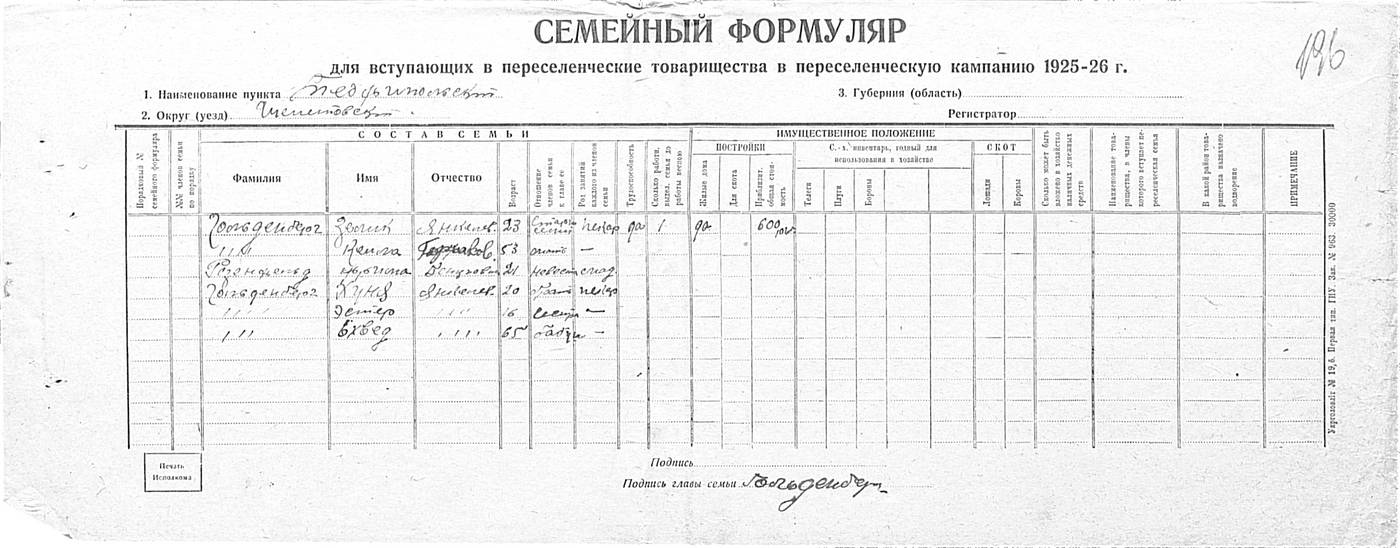 СЕМЕЙНЫЙ ФОРМУЛЯР
196
для вступающих в переселенческие товарищества в переселенческую кампанию 1925-26 г.
1. Наименование пункта
3. Губерния (область)
2. Округ (уезд) Шепетовский
Регистратор
СОСТАВ СЕМЬИ
ИМУЩЕСТВЕННОЕ ПОЛОЖЕНИЕ
Порядковый № семейного формуляра
№№ членов семьи по порядку
Фамилия
Имя
Отчество
Возраст
Отношение членов семьи к главе ее
Род занятий каждого из членов семьи
Трудоспособность
Сколько работн. выдел. семья до работы весною
ПОСТРОЙКИ
Жилые дома
Для скота
Приблизит. общая стоимость
С.-х. инвентарь, годный для использования в хозяйстве
Телеги
Плуги
Бороны
СКОТ
Лошади
Коровы
Сколько может быть вложено в хозяйство наличных денежных средств
Наименование товарищества, в члены которого вступает переселенческая семья
В какой район товарищества назначено водворение
ПРИМЕЧАНИЕ
Гольденберг Зелик Янкелев. 23 пекар да 1 да 600
" " " Кейла 53 —
Розенфельд 21
Гольденберг Куня Янкелев. 20 брат пекар
" " " " Эстер " " " 16 сестра —
" " " Ёхвед " " " " 65 бабуш —
Укрголовліт № 19,6. Первая тип. ГИУ. Зак. № 963. 30000
Печать
Исполкома
Подпись
Подпись главы семьи Гольденберг